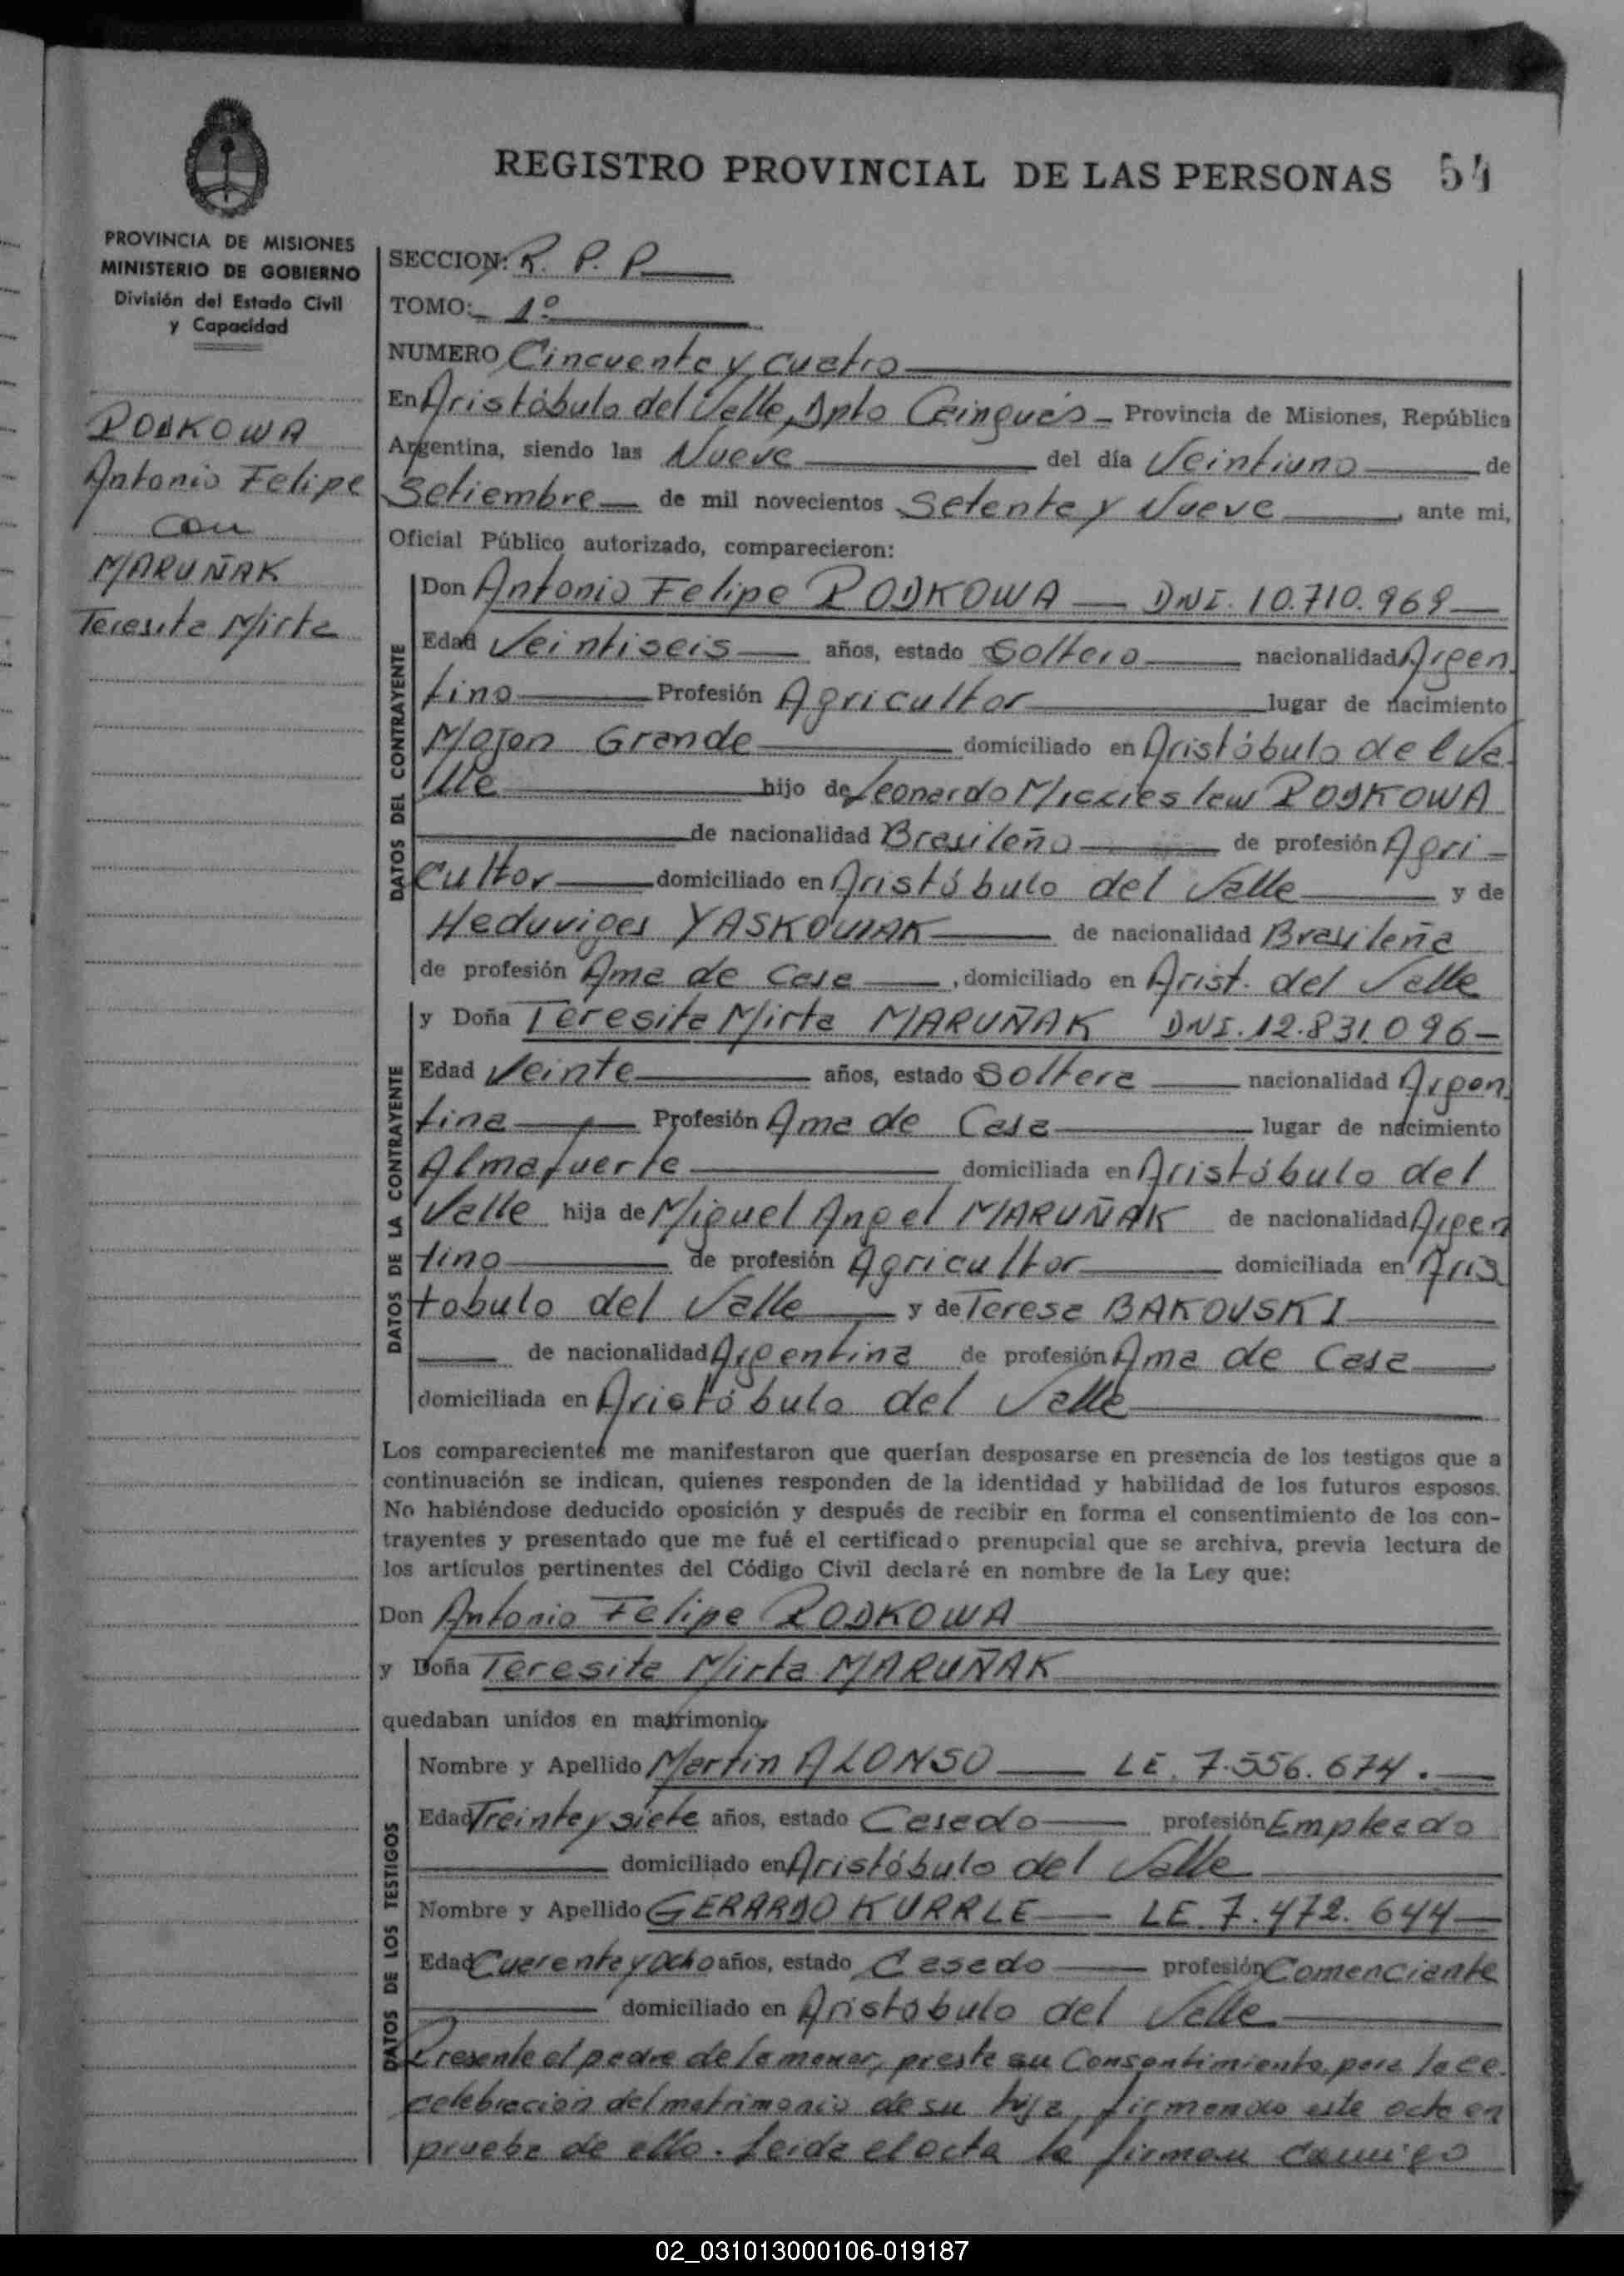 REGISTRO PROVINCIAL DE LAS PERSONAS 54
PROVINCIA DE MISIONES
MINISTERIO DE GOBIERNO
División del Estado Civil
y Capacidad
RODKOWA
Antonio Felipe
con
MARUÑAK
Teresita Mirta
SECCION: R. P. P.
TOMO: 1º
NUMERO Cincuenta y cuatro
En Aristóbulo del Valle, Dpto Cainguás - Provincia de Misiones, República
Argentina, siendo las Nueve del día Veintiuno de
Setiembre de mil novecientos Setenta y Nueve, ante mi,
Oficial Público autorizado, comparecieron:
DATOS DEL CONTRAYENTE
Don Antonio Felipe RODKOWA DNI. 10.710.969
Edad Veintiseis años, estado Soltero nacionalidad Argen
tino Profesión Agricultor lugar de nacimiento
Mojon Grande domiciliado en Aristóbulo del Va
lle hijo de Leonardo RODKOWA
de nacionalidad Brasileño de profesión Agri-
cultor domiciliado en Aristóbulo del Valle y de
Heduviges YASKOVIAK de nacionalidad Brasileña
de profesión Ama de Casa, domiciliado en Arist. del Valle
DATOS DE LA CONTRAYENTE
y Doña Teresita Mirta MARUÑAK DNI. 12.831.096-
Edad Veinte años, estado Soltera nacionalidad Argen
tina Profesión Ama de Casa lugar de nacimiento
Almafuerte domiciliada en Aristóbulo del
Valle hija de Miguel Angel MARUÑAK de nacionalidad Argen
tino de profesión Agricultor domiciliada en Aris
tobulo del Valle y de Teresa BAKOVSKI
de nacionalidad Argentina de profesión Ama de Casa
domiciliada en Aristóbulo del Valle
Los comparecientes me manifestaron que querían desposarse en presencia de los testigos que a
continuación se indican, quienes responden de la identidad y habilidad de los futuros esposos.
No habiéndose deducido oposición y después de recibir en forma el consentimiento de los con-
trayentes y presentado que me fué el certificado prenupcial que se archiva, previa lectura de
los artículos pertinentes del Código Civil declaré en nombre de la Ley que:
Don Antonio Felipe RODKOWA
y Doña Teresita Mirta MARUÑAK
quedaban unidos en matrimonio.
DATOS DE LOS TESTIGOS
Nombre y Apellido Martin ALONSO LE. 7.556.674.
Edad Treinta y siete años, estado Casado profesión Empleado
domiciliado en Aristóbulo del Valle
Nombre y Apellido GERARDO KURRLE LE. 7.472.644
Edad Cuarenta y ocho años, estado Casado profesión Comerciante
domiciliado en Aristobulo del Valle
Presente el padre de la menor, presta su Consentimiento para la ce-
celebracion del matrimonio de su hija, firmando este acta en
prueba de ello. Leida el acta la firman conmigo
02_031013000106-019187